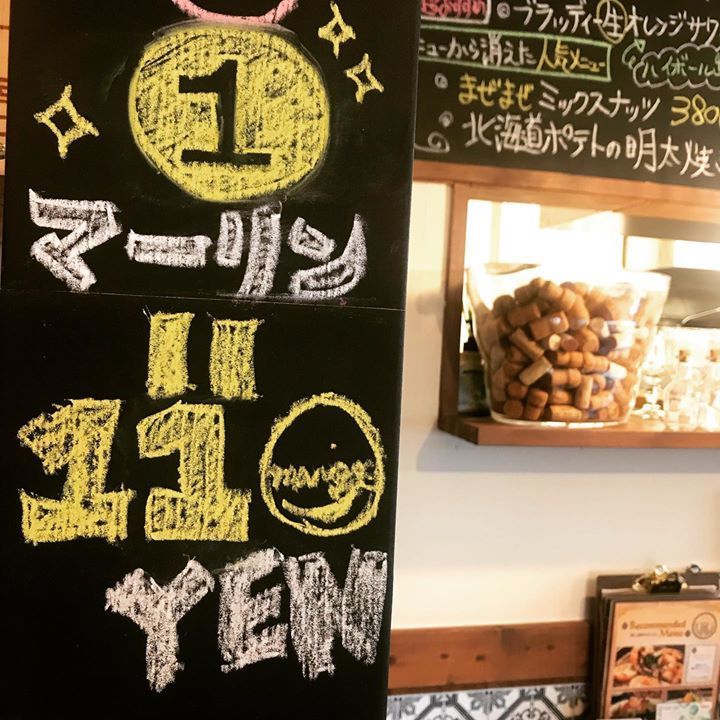 1
マーリン
=
110
YEN
おすすめ
ブラッディー生オレンジサワ
ニューから消えた人気メニュー
ハイボール
まぜまぜミックスナッツ 380
北海道ポテトの明太焼き
Recommended
Menu